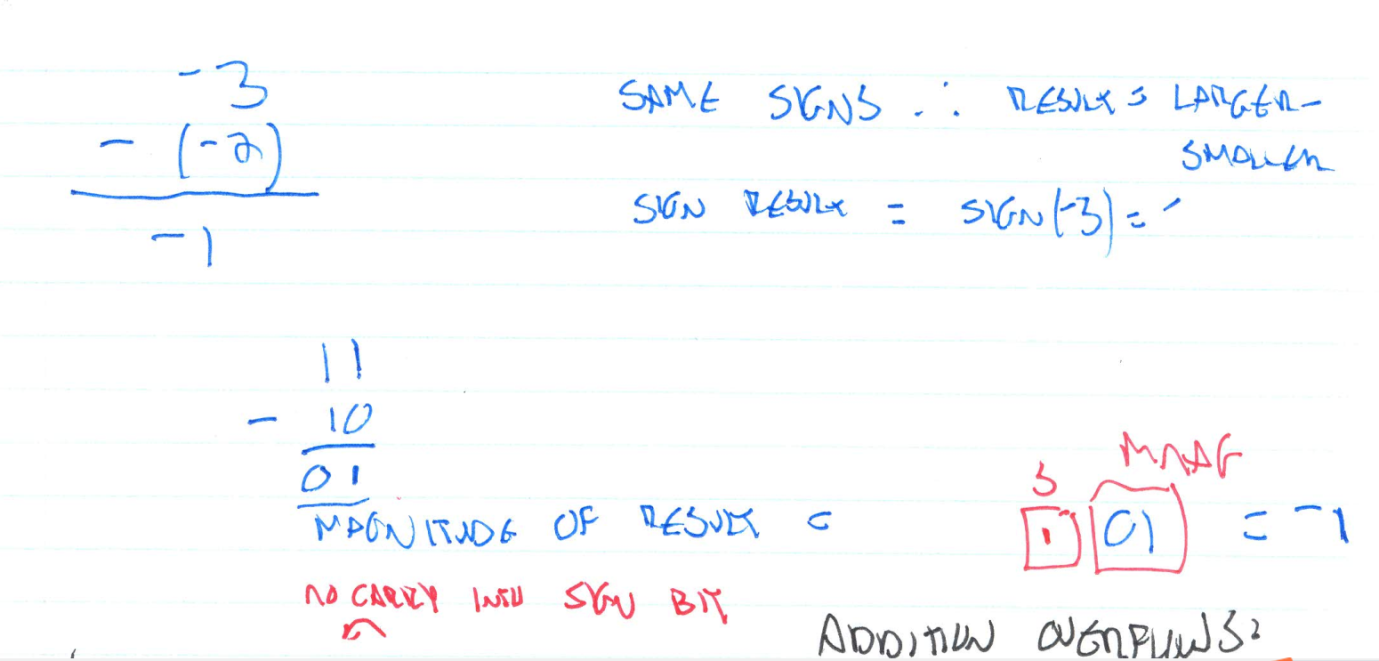 -3
- (-2)
-1
SAME SIGNS ∴ RESULT = LARGER -
SMALLER
SIGN RESULT = SIGN(-3) = -
11
- 10
01
MAGNITUDE OF RESULT =
S MAG
1 01 = -1
NO CARRY INTO SIGN BIT
ADDITION OVERFLOWS?